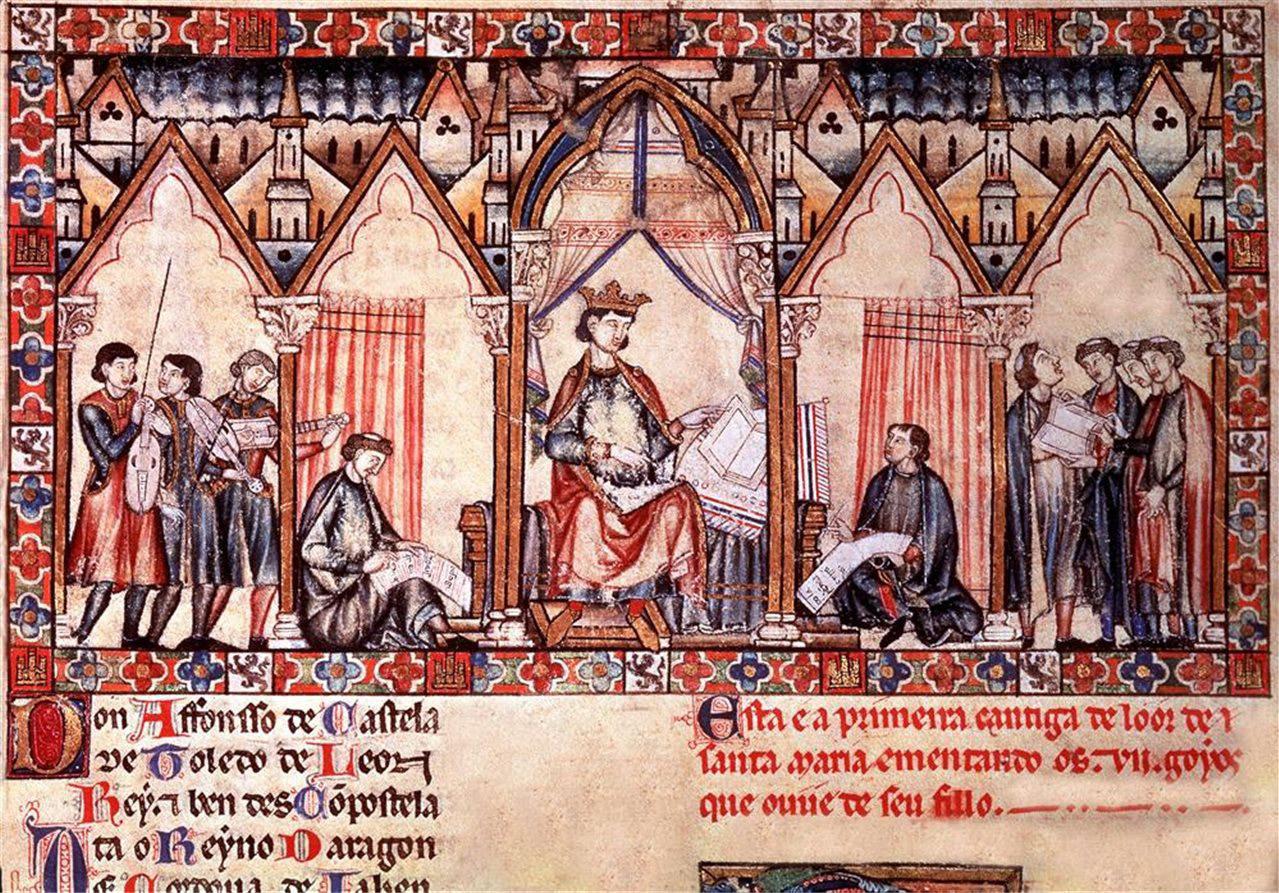 Don Affonsso de Castela
de Toledo de Leon
Rey. ⁊ ben des Cōpostela
ta o Reyno Daragon
De Cordova de Jahen
Esta e a primeira cantiga de loor de
santa maria ementando os .vii. goyos
que ouve de seu fillo.